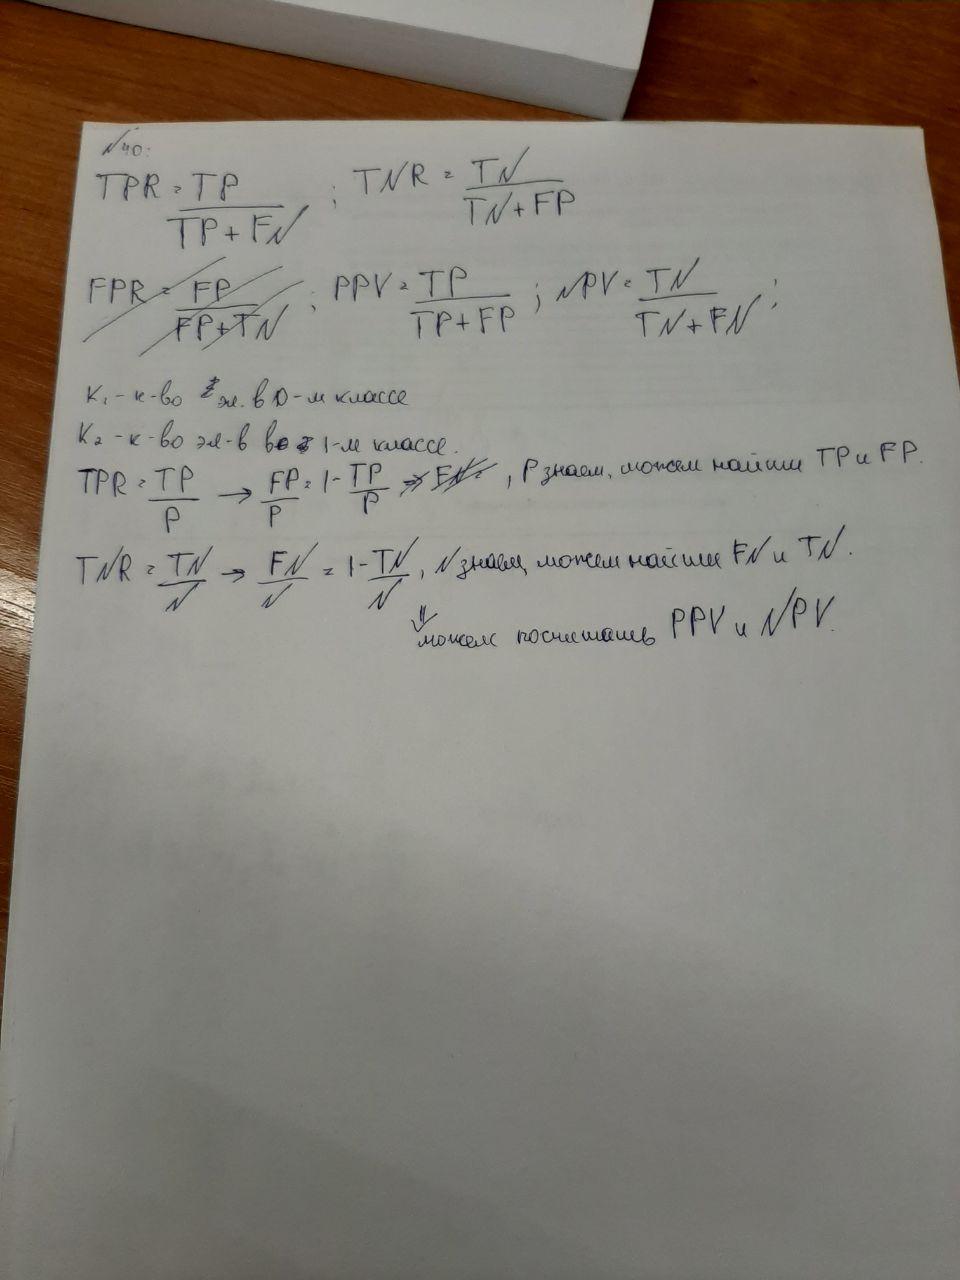 N40:
TPR = TP / (TP + FN) ; TNR = TN / (TN + FP)
FPR = FP / (FP + TN) ; PPV = TP / (TP + FP) ; NPV = TN / (TN + FN) ;
K₁ - к-во эл. в 0-м классе
K₂ - к-во эл-в в 1-м классе.
TPR = TP / P → FP / P = 1 - TP / P , P знаем, можем найти TP и FP.
TNR = TN / N → FN / N = 1 - TN / N , N знаем, можем найти FN и TN.
⇓
можем посчитать PPV и NPV.